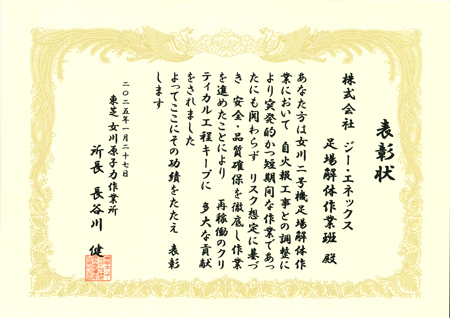 表彰状
株式会社 ジー・エネックス
足場解体作業班 殿
あなた方は女川二号機足場解体作
業において 自火報工事との調整に
より突発的かつ短期間な作業であっ
たにも関わらず リスク想定に基づ
き 安全・品質確保を徹底し作業
を進めたことにより 再稼働のクリ
ティカル工程キープに 多大な貢献
をされました
よってここにその功績をたたえ 表彰
します
二〇二五年一月二十七日
東芝 女川原子力作業所
所長 長谷川 健